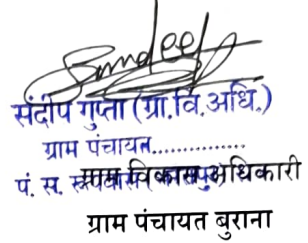 Sandeep
संदीप गुप्ता (ग्रा.वि.अधि.)
ग्राम पंचायत...............
पं. स.
ग्राम विकास अधिकारी
ग्राम पंचायत बुराना